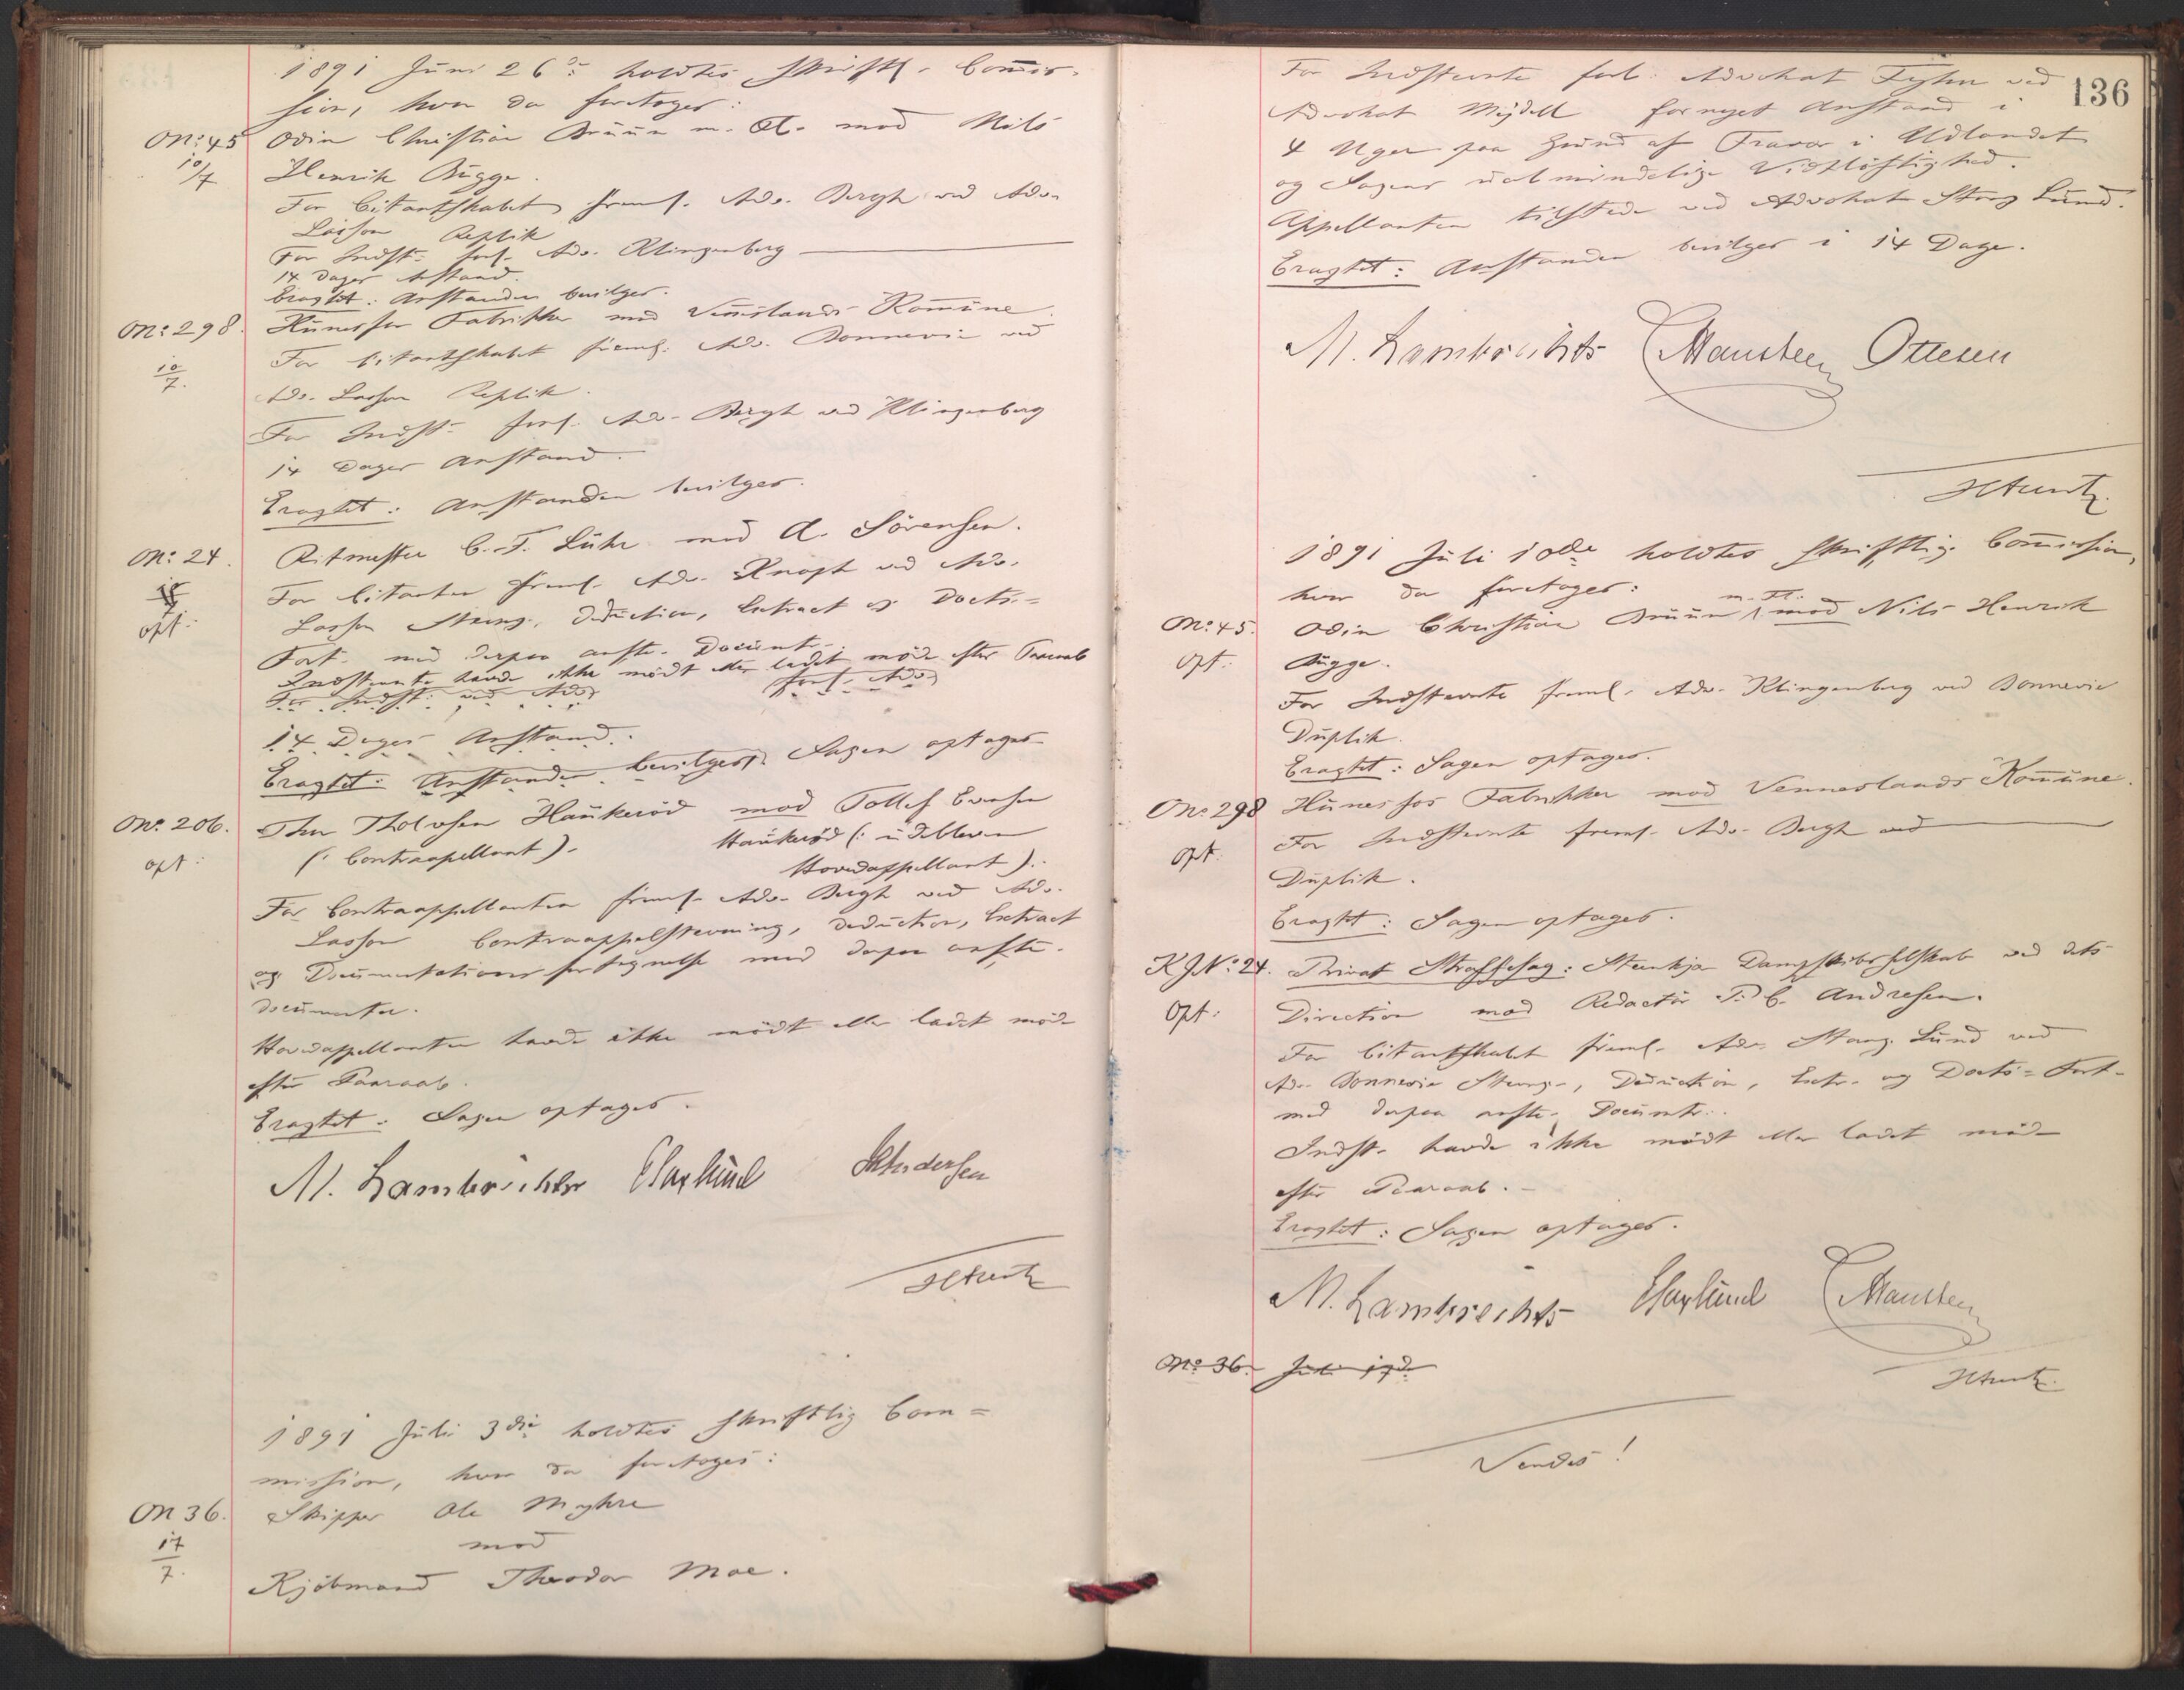 1891 Juni 26de holdtes skriftl. Commis-
sion, hvor da foretoges:
No: 45 Odin Christian Bruun m. Fl. mod Nils
10/7 Henrik Bugge.
For Citantskabet freml. Adv. Bergh ved Adv.
Lasson Replik
For Indst. forl. Adv. Klingenberg
14 Dages Anstand.
Eragtet: Anstanden bevilges.
No: 298. Hunesfos Fabrikker mod Venneslands Kommune.
For Citantskabet freml. Adv. Bonnevie ved
10/7. Adv. Lasson Replik.
For Indst. forl. Adv. Bergh ved Klingenberg
14 Dages Anstand.
Eragtet: Anstanden bevilges.
No: 24. Ritmester C. F. Lühr mod A. Sörensen.
For Citanten freml. Adv. Knoph ved Adv.
opt: Lasson Stevng., Deduction, Extract og Docts.=
Fort. med derpaa anfte. Docunt.
Indstevnte havde ikke mödt eller ladet möde efter Paaraab
For Indst: ved Adv. forl. Adv.
14 Dages Anstand.
Eragtet: Anstanden bevilges. Sagen optages
No. 206. Thor Tholvsen Haukeröd mod Tollef Evensen
opt: (: Contraappellant). Haukeröd (: udebleven
Hovedappellant).
For Contraappellanten freml. Adv. Bergh ved Adv.
Lasson Contraappelstevning, Deduction, Extract
og Documentationsfortegnelse med derpaa anfte.
Documenter.
Hovedappellanten havde ikke mödt eller ladet möde
efter Paaraab.
Eragtet: Sagen optages.
M. Lambrechts
1891 Juli 3die holdtes skriftlig Com=
mission, hvor da foretoges:
No 36. Skipper Ole Myhre
17/7. mod
Kjöbmand Theodor Moe.
136
For Indstevnte forl. Advokat ved
Advokat Mejdell fornyet Anstand i
4 Uger paa Grund af Fravær i Udlandet
og Sagens ualmindelige Vidtlöftighed.
Appellanten tilstede ved Advokat Stang Lund.
Eragtet: Anstanden bevilges i 14 Dage.
M. Lambrechts Mansteen Ottesen
1891 Juli 10de holdtes skriftlig Commission,
hvor da foretoges:
No: 45. Odin Christian Bruun m. Fl. mod Nils Henrik
opt: Bugge.
For Indstevnte freml. Adv. Klingenberg ved Bonnevie
Duplik.
Eragtet: Sagen optages.
No. 298 Hunesfos Fabrikker mod Venneslands Kommune.
For Indstevnte freml. Adv. Bergh ved
opt. Duplik.
Eragtet: Sagen optages.
K J No: 24. Privat Straffesag: Stenkjær Dampskibsselskab ved dets
Opt: Direction mod Redactör P. C. Andresen.
For Citantskabet freml. Adv. Stang Lund ved
Adv. Bonnevie Stevng., Deduction, Extr. og Docts.= Fort.
med derpaa anfte. Docunt.
Indst. havde ikke mödt eller ladet möde
efter Paaraab.
Eragtet: Sagen optages.
M. Lambrechts Mansteen
No 36. Juli 17de
Vendes!